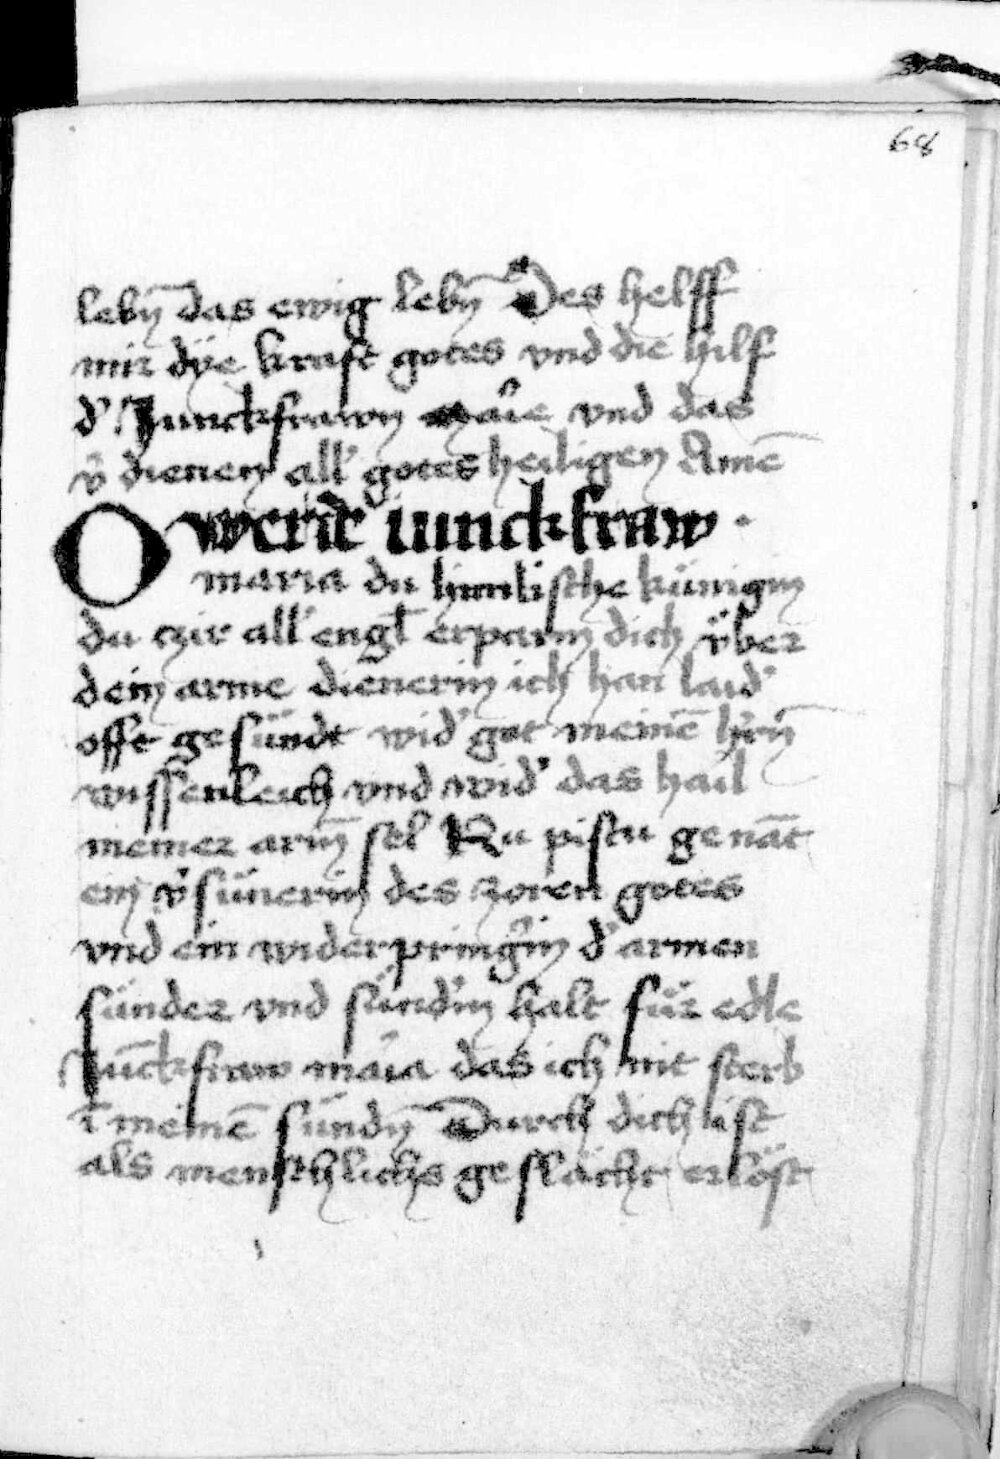 68
lebn̄ das ewig lebn̄ Des helff
mir dÿe kraft gotes vnd die hilf
d' Junckfrawn maîe vnd das
v̄ dienen all' gotes heiligen Amē
O werde iunckfraw ·
maria du himlische künigin
du czir all' engl̄ erparm dich v̈ber
dein arme dienerin ich han laid'
offt gesündt wid' got meinē hr̄n
wissenleich vnd wid' das hail
meiner arm̄ sel Nu pistu genāt
ein v̄sünerin des zoren gotes
vnd ein widerpring'in d' armen
sünder vnd sünd'in halt für edle
Jūckfraw maîa das ich nit sterb
ī meinē sündn̄ Durch dich ist
als menschlichs geslächt erlöst